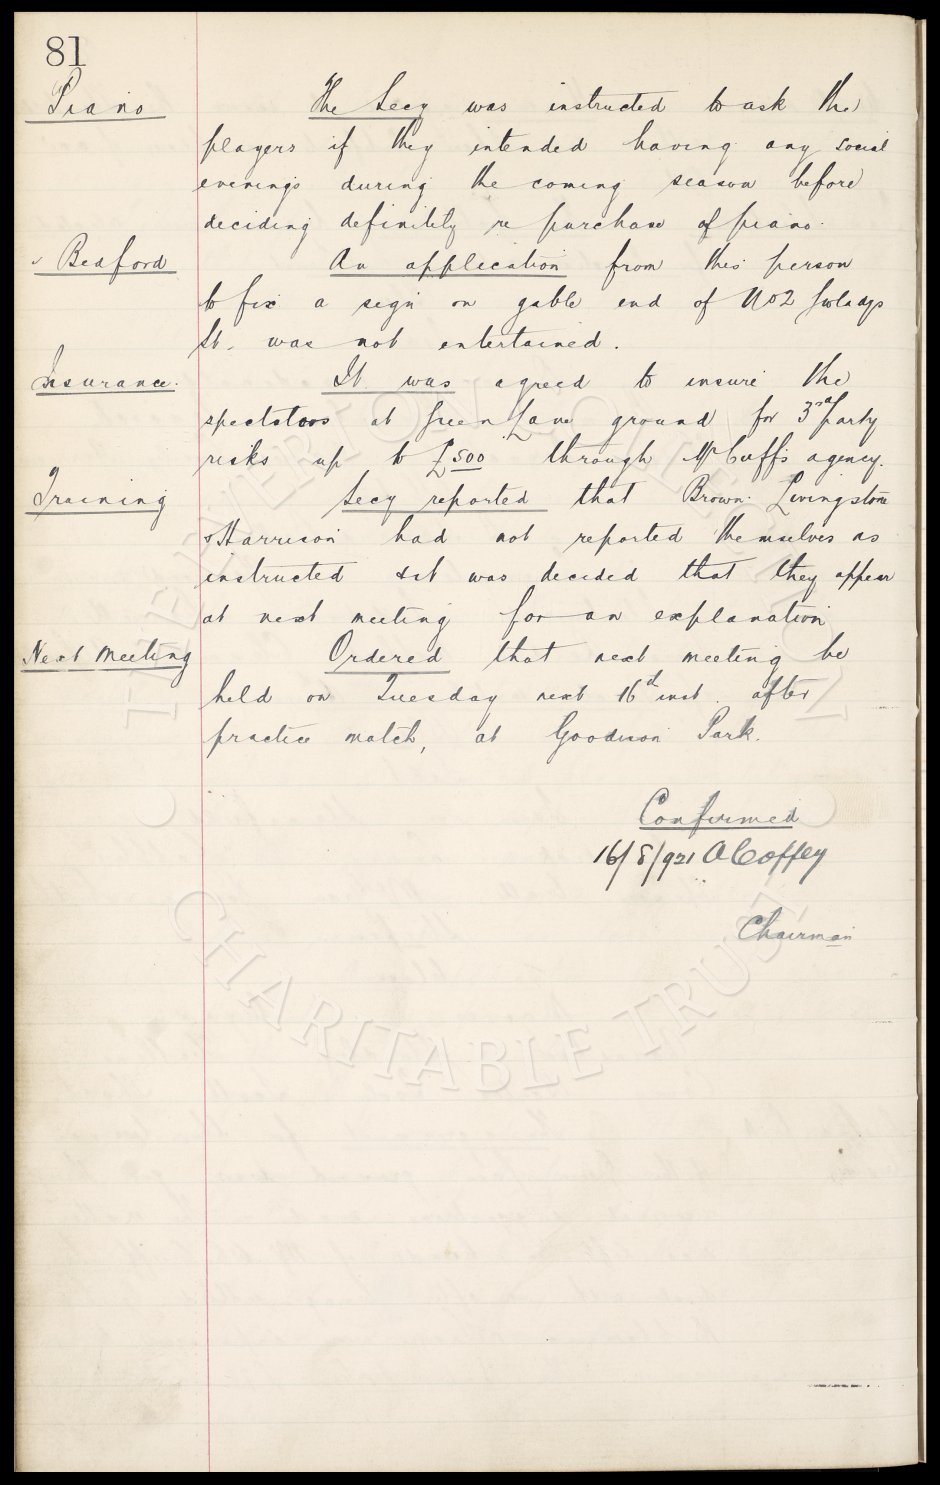 81
Piano The Secy was instructed to ask the
players if they intended having any social
evenings during the coming season before
deciding definitely re purchase of piano.
Beaford An application from this person
to fix a sign on gable end of No 2 Gwladys
St. was not entertained.
Insurance. It was agreed to insure the
spectators at Green Lane ground for 3rd party
risks up to £500 through Mr Cuff's agency.
Training Secy reported that Brown. Livingstone
& Harrison had not reported themselves as
instructed & it was decided that they appear
at next meeting for an explanation
Next Meeting Ordered that next meeting be
held on Tuesday next 16th inst. after
practice match, at Goodison Park.
Confirmed
16/8/921 A Coffey
Chairman
THE EVERTON COLLECTION
CHARITABLE TRUST